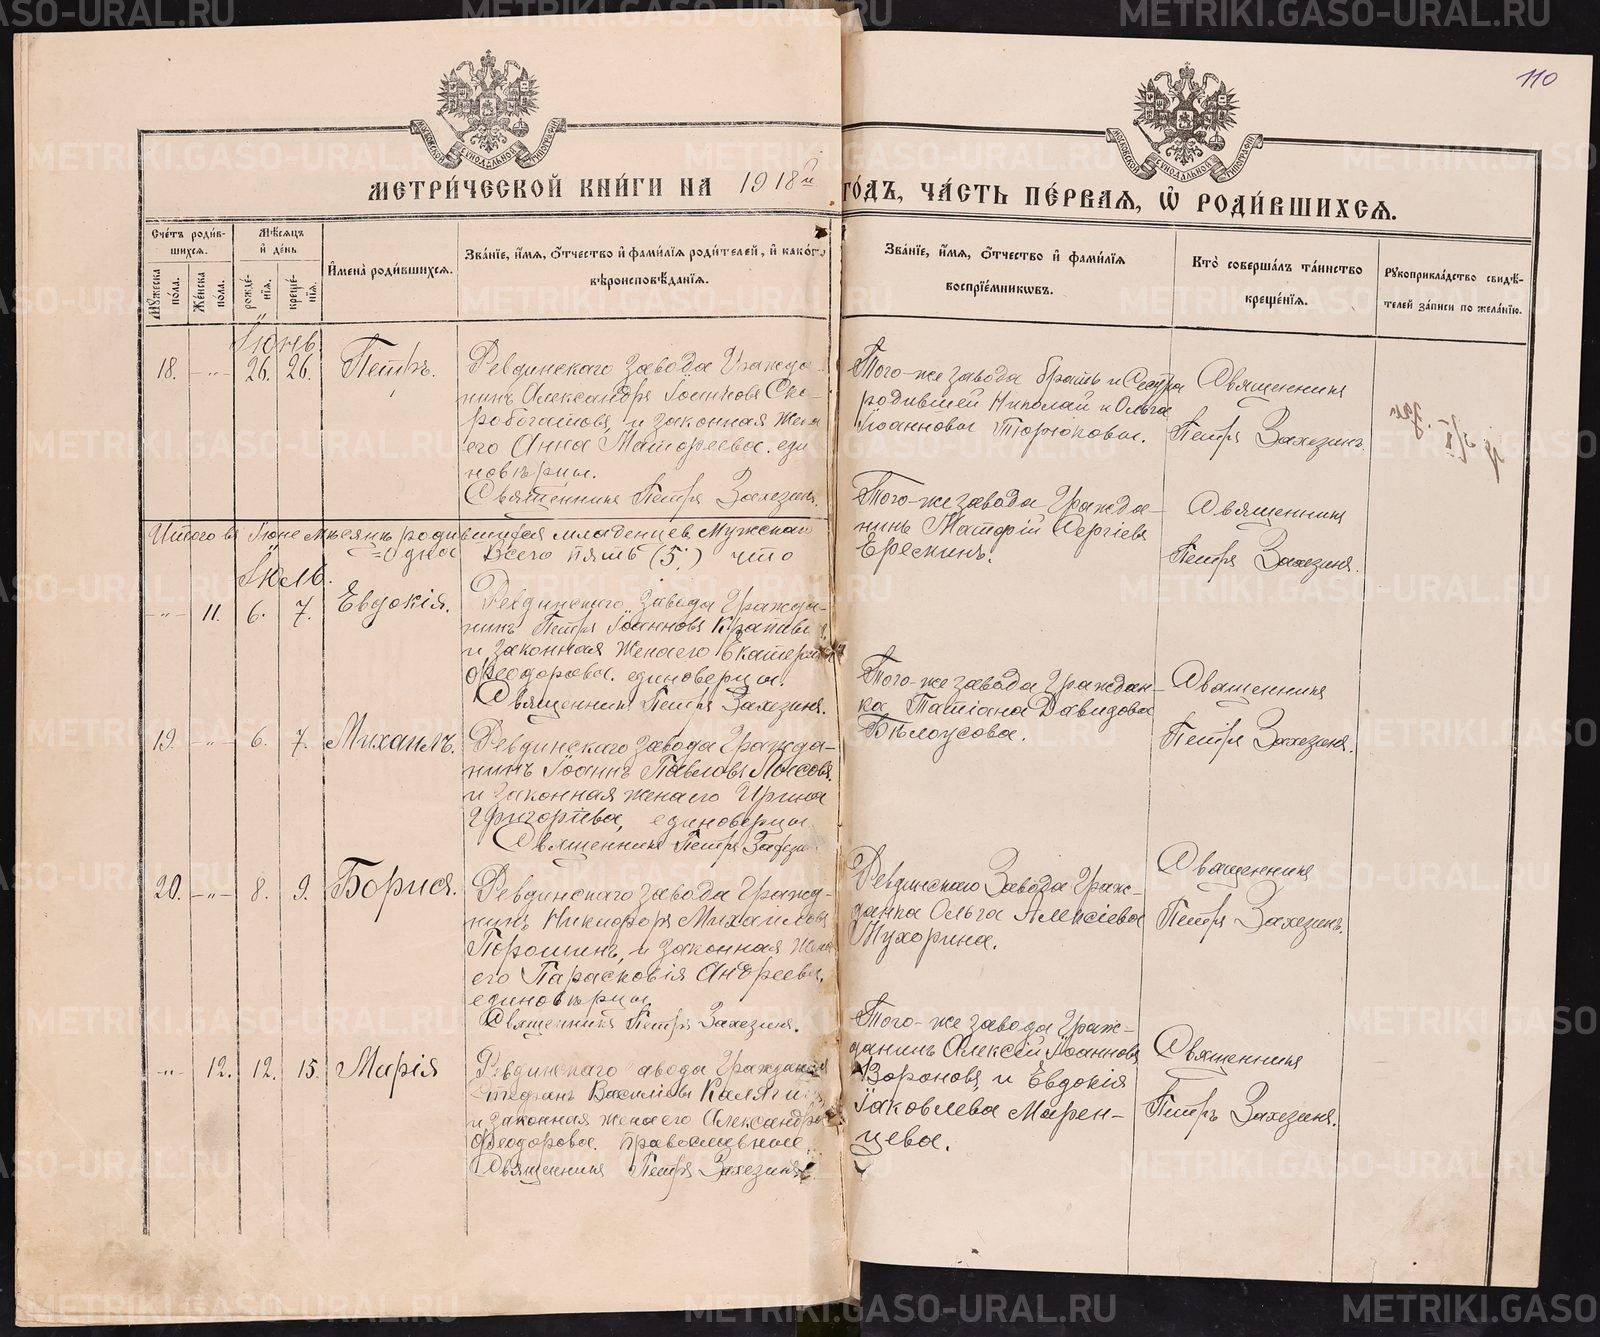 110
МЕТРИ́ЧЕСКОЙ КНИ́ГИ НА 1918й ГО́ДЪ, ЧА́СТЬ ПЕ́РВАЯ, Ѽ РОДИ́ВШИХСЯ.
Сче́тъ роди́вшихся.
Мꙋ́жеска по́ла.
Же́нска по́ла.
Мѣ́сяцъ и҆ де́нь
рожде́нїя.
креще́нїя.
И҆мена̀ роди́вшихся.
Зва́нїе, и҆́мя, ѻ҆́тчество и҆ фами́лїя роди́телей, и҆ како́гѡ
вѣроисповѣ́данїя.
Зва́нїе, и҆́мя, ѻ҆́тчество и҆ фами́лїя
воспрїе́мникѡвъ.
Кто̀ соверша́лъ та́инство
креще́нїя.
Рꙋкоприкла́дство свидѣ́-
телей за́писи по жела́нїю.
Іюнь.
18. -"- 26. 26. Петръ.
Ревдинскаго завода Гражда-
нинъ Александръ Іоанновъ Ско-
робогатовъ, и законная жена
его Анна Матфеева. еди
новѣрцы.
Священникъ Петръ Захезинъ.
Того-же завода братъ и Сестра
родившей Николай и Ольга
Іоанновы Торюковы.
Священникъ
Петръ Захезинъ.
Итого въ Іюне месяцѣ родившихся младенцев Мужскаго
Всего пять (5.) что
Іюль.
-"- 11. 6. 7. Евдокія.
Ревдинскаго завода Гражда-
нинъ Петръ Іоанновъ
и законная жена его Екатерина
Феодорова. единоверцы.
Священник Петръ Захезинъ.
Того-же завода Гражда-
нинъ Матфій Сергіевъ
Ерескинъ.
Священникъ
Петръ Захезинъ.
19. -"- 6. 7. Михаилъ.
Ревдинскаго завода Гражда-
нинъ Іоаннъ Павловъ
и законная жена его Ирина
Григорьева, единоверцы.
Священникъ Петръ
Того-же завода Граждан-
ка Татіана Давидова
Бѣлоусова.
Священникъ
Петръ Захезинъ.
20. -"- 8. 9. Борисъ.
Ревдинскаго завода Гражда-
нинъ Никифоръ Михаиловъ
Порошинъ, и законная жена
его Парасковія Андреева,
единовѣрцы.
Священникъ Петръ Захезинъ.
Ревдинскаго Завода Граж-
данка Ольга Алексіева
Мухорина.
Священникъ
Петръ Захезинъ.
-"- 12. 12. 15. Марія
Ревдинскаго завода Гражданинъ
Стефанъ Василіевъ
и законная жена его Александра
Феодорова. православные.
Священникъ Петръ Захезинъ.
Того-же завода Граж-
данинъ Алексій Іоанновъ
Вороновъ, и Евдокія
Іаковлева Марен-
цева.
Священникъ
Петръ Захезинъ.
METRIKI.GASO-URAL.RU